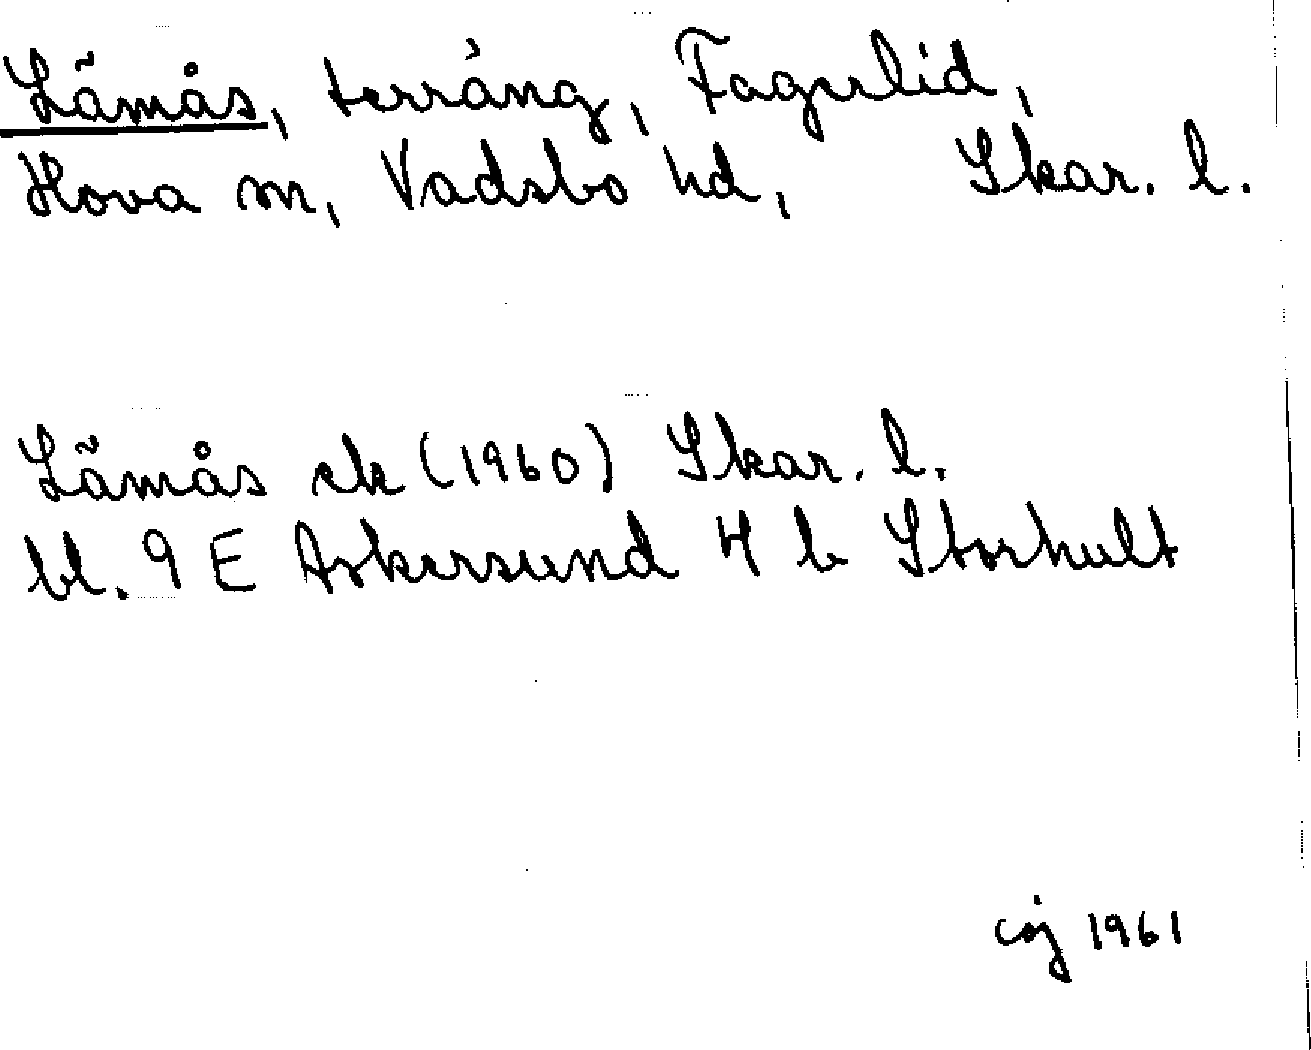 Lämås, terräng, Fagerlid,
Hova sn, Vadsbo hd, Skar. l.
Lämås ek (1960) Skar. l.
bl. 9 E Askersund 4 b Storhult
1961